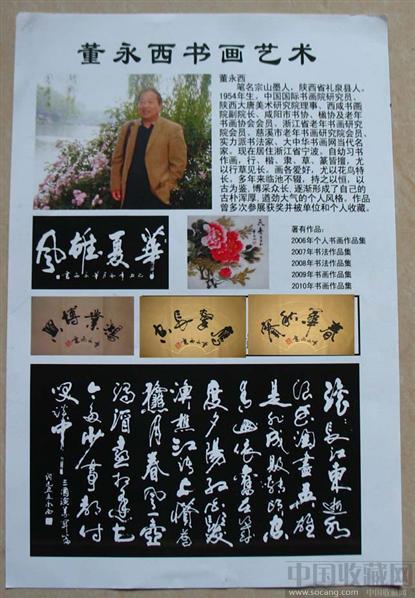 董永西书画艺术
董永西
笔名宗山墨人，陕西省礼泉县人。
1954年生。中国国际书画院研究员、
陕西大唐美术研究院理事、西咸书画
院副院长、咸阳市书协、楹协及老年
书画协会会员、浙江省老年书画研究
院会员、慈溪市老年书画研究院会员、
实力派书法家、大中华书画网当代名
家。现在居住浙江省宁波。自幼习书
作画，行、楷、隶、草、篆皆擅，尤
以行草见长。画各爱好，尤以花鸟特
长。多年来临池不辍，持之以恒，以
古为鉴，博采众长，逐渐形成了自己的
古朴浑厚、遒劲大气的个人风格。作品
曾多次参展获奖并被单位和个人收藏。
著有作品：
2006年个人书画作品集
2007年书法作品集
2008年书法作品集
2009年书画作品集
2010年书画作品集
華夏雄風
滚滚長江東逝水
浪花淘盡英雄
是非成敗轉頭空
青山依舊在
度夕陽紅
漁樵江渚上
秋月春風
一壺濁酒喜相逢
古今多少事都付
笑談中
中国收藏网
www.socang.com 中国收藏网